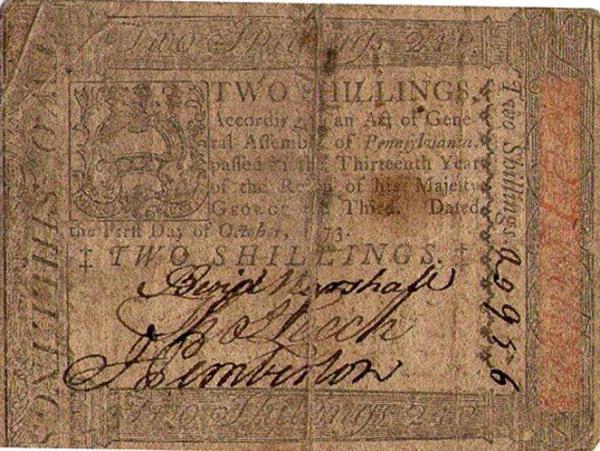 Two Shillings 24 d.
TWO SHILLINGS
TWO SHILLINGS.
According an Act of Gene-
ral Assembly of Pennsylvania,
passed in the Thirteenth Year
of the Reign of his Majesty
GEORGE Third. Dated
the First Day of October, 1773.
‡ TWO SHILLINGS. ‡
Benj Marshall
Leech
J Pemberton
Two Shillings
20956
Two Shillings 24 d.